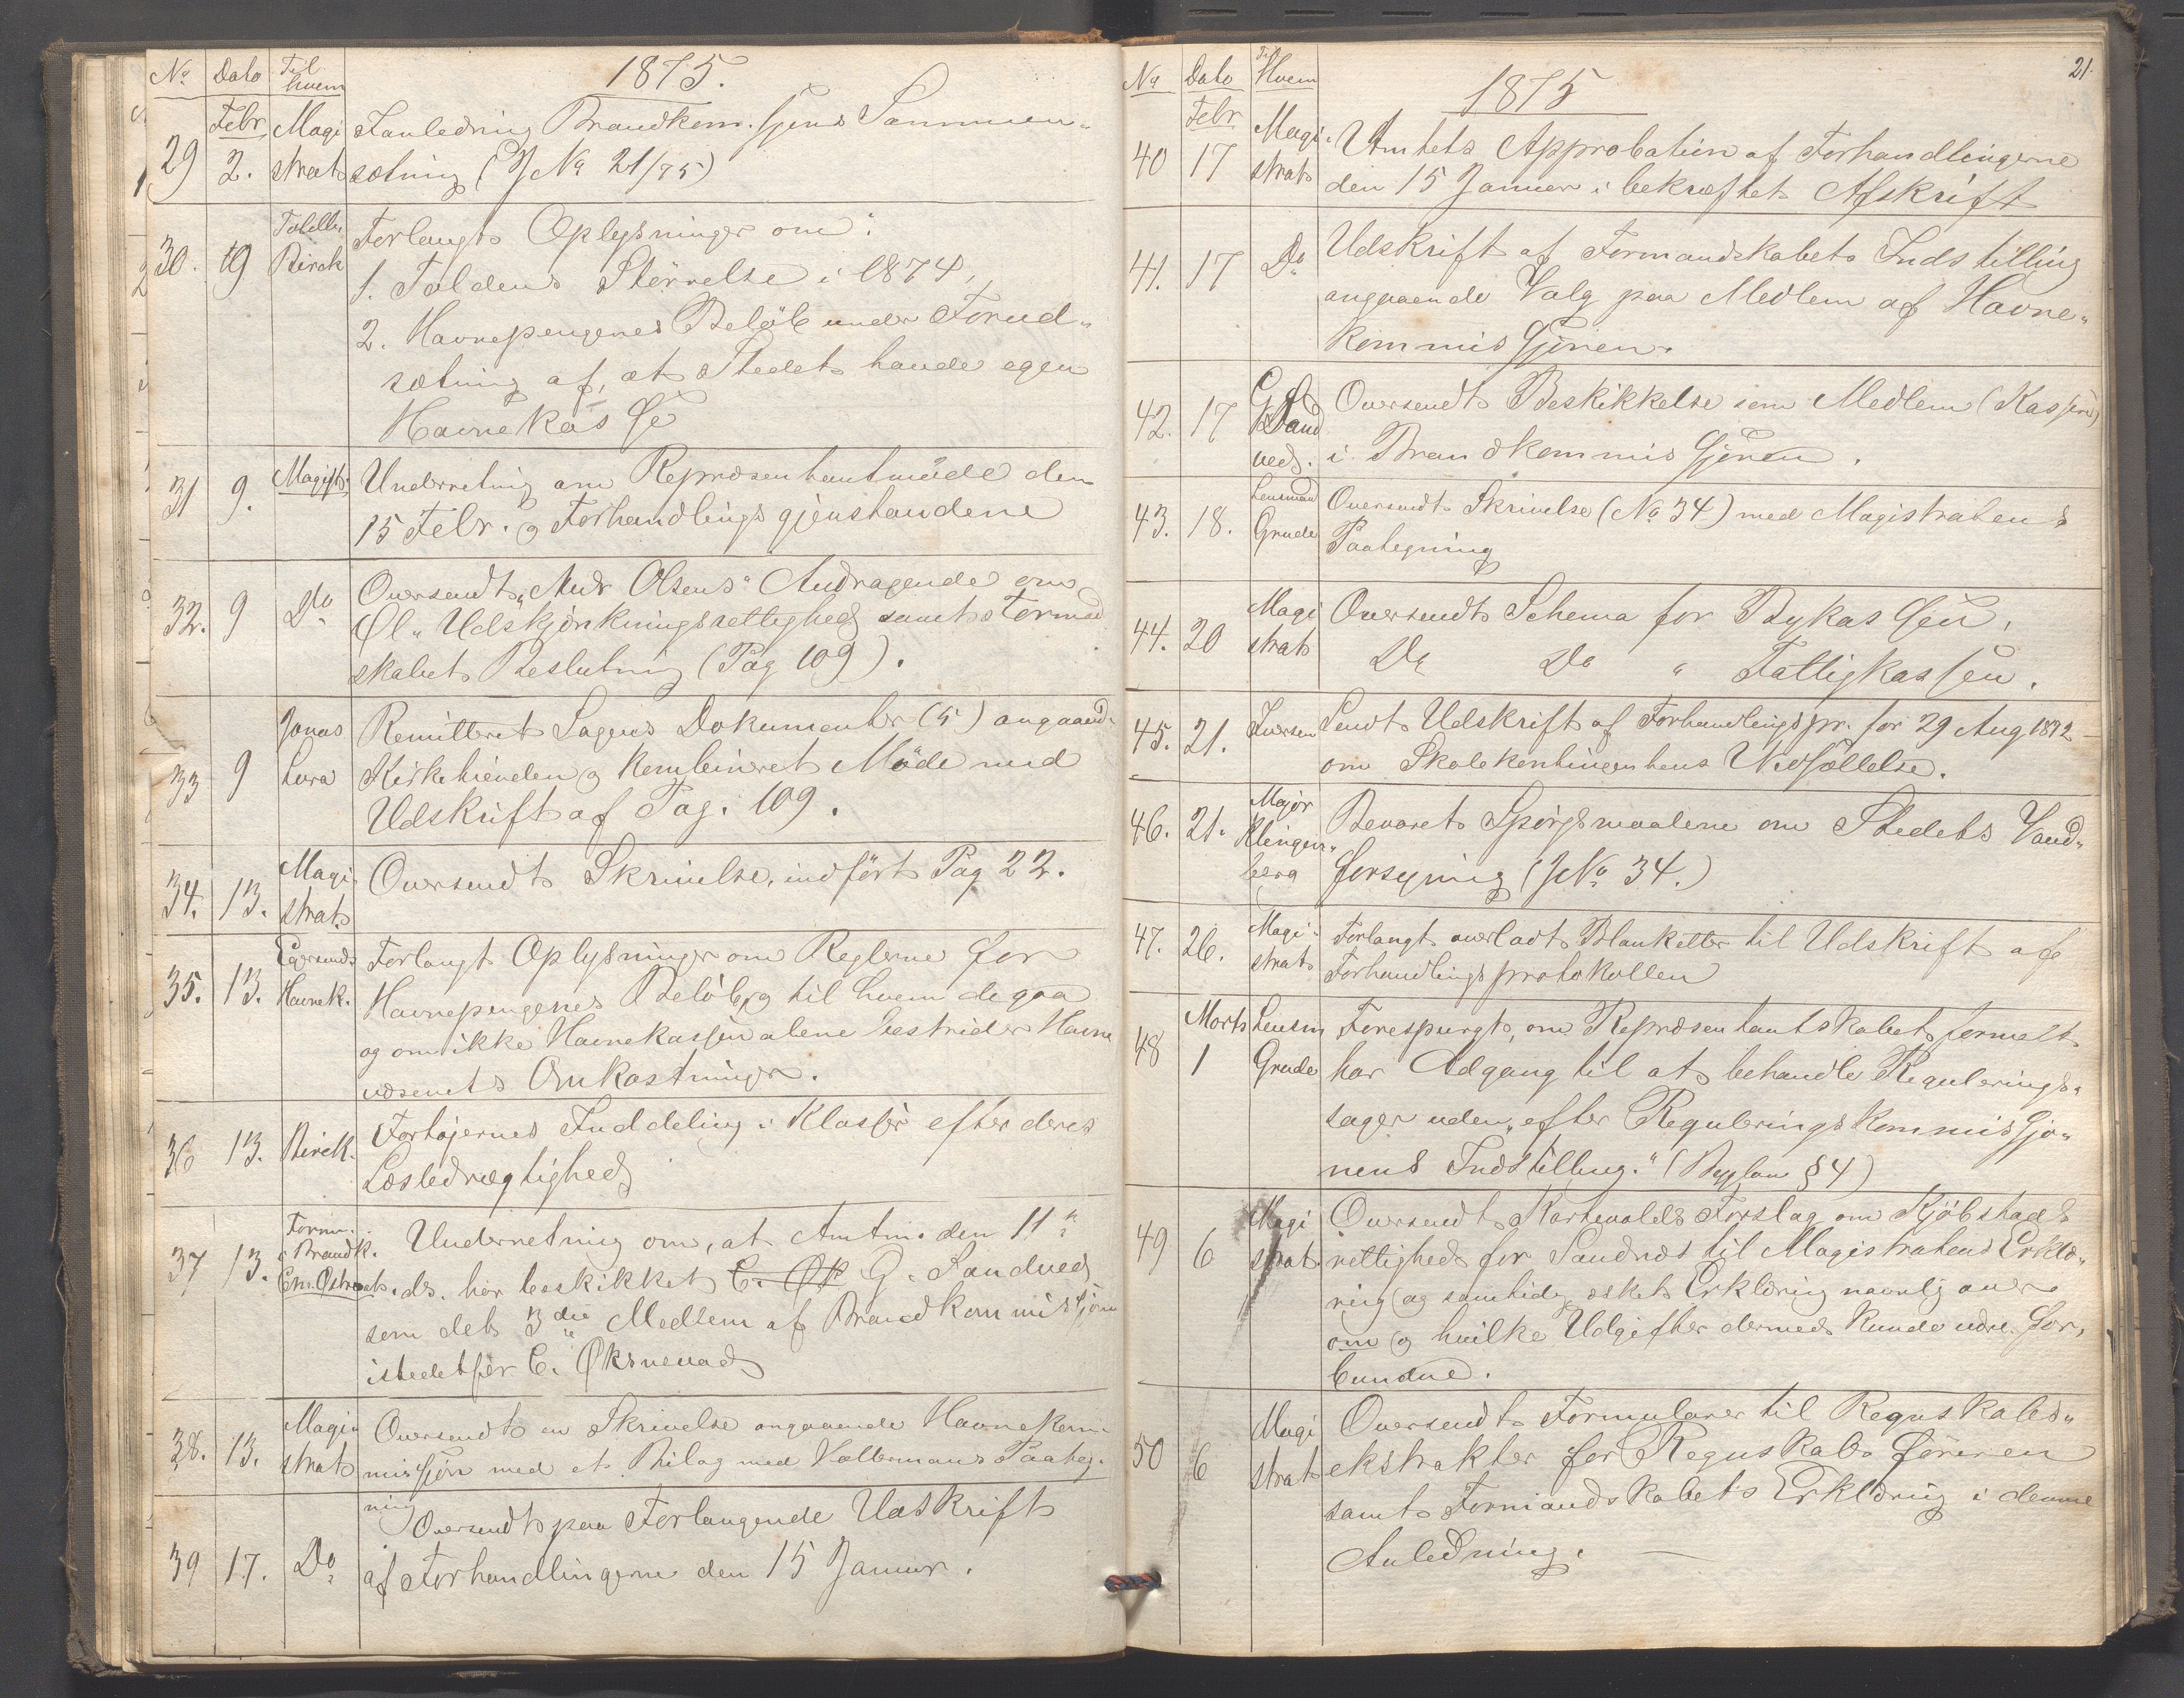 No Dato Til hvem 1875.
29 Febr 2. Magistrat I anledning Brandkom.sjons Sammen-
sætning (J No 21/75)
30. 9 Toldb. Birck Forlangt Oplysninger om:
1. Toldens Störrelse i 1874,
2. Havnepengenes Belöb under Forud-
sætning af, at Stedet havde egen
Havnekasse
31 9. Magistr. Underretning om Repræsentantmöde den
15 Febr. og Forhandlingsgjenstandene
32. 9 Do Oversendt "Andr Olsens" Andragende om
Øl-Udskjænkningsrettighed samt Formand
skabets Beslutning (Pag 109).
33 9 Jonas Lura Remitteret Sagens Dokumenter (5) angaaend-
Kirketienden og kombineret Möde med
Udskrift af Pag. 109.
34. 13. Magistrat Oversendt Skrivelse, indfört Pag 22.
35. 13. Egersunds Havnek. Forlangt Oplysninger om Reglerne for
Havnepengenes Belöb og til hvem de gaa
og om ikke Havnekassen alene bestrider Havne
væsenets Omkostninger.
36 13. Birck. Fartöjernes Inddeling i Klasser efter deres
Læstedrægtighed
37 13. Form. i Brandk. Em. Østraat Underretning om, at Amtm. den 11te
ds. har beskikket C. Øk G. Sandved
som det 3die Medlem af Brandkommissjonen
istedetfor C. Øksnevad
38. 13. Magistrat Oversendt en Skrivelse angaaende Havnekom-
missjon med et Bilag med Voldermans Paateg-
ning
39 17. Do Oversendt paa Forlangende Udskrift
af Forhandlingerne den 15 Januar.
21.
No Dato Til Hvem 1875
40 Febr 17 Magistrat Amtets Approbation af Forhandlingerne
den 15 Januar i bekræftet Afskrift
41. 17 Do Udskrift af Formandskabets Indstilling
angaaende Valg paa Medlem af Havne-
kommissjonen.
42. 17 G Sandved. Oversendt Beskikkelse som Medlem (Kasserer)
i Brandkommissjonen.
43. 18. Lensmand Grude Oversendt Skrivelse (No 34) med Magistratens
Paategning
44. 20 Magistrat Oversendt Schema for Bykassen,
Do Do " Fattigkassen.
45. 21. Iversen Sendt Udskrift af Forhandlingspr. for 29 Aug 1872
om Skolekontingentens Nedsættelse.
46. 21. Major Klingenberg Besvaret Spörgsmaalene om Stedets Vand-
forsyning (J No 34.)
47. 26. Magistrat Forlangt overladt Blanketter til Udskrift af
Forhandlingsprotokollen
48 Marts 1 Lensm Grude Forespurgt, om Repræsentantskabet formelt
har Adgang til at behandle Regulerings-
sager uden "efter Reguleringskommissjo-
nens Indstilling." (Bygglov § 4)
49 6 Magistrat Oversendt Kartevolds Forslag om Kjöbstads
rettighed for Sandnæs til Magistratens Erklæ-
ring og samtidig æsket Erklæring navnlig over
om og hvilke Udgifter dermed kunde være for-
bundne.
50 6 Magistrat Oversendt Formularer til Regnskabs-
ekstrakter for Regnskabsföreren
samt Formandskabets Erklæring i denne
Anledning.